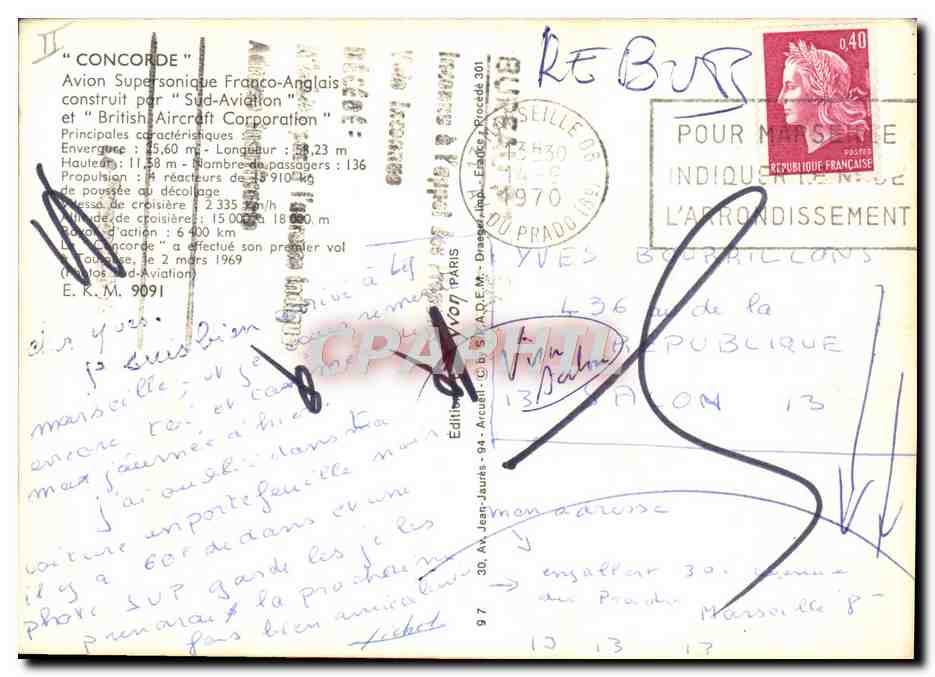 II
" CONCORDE "
Avion Supersonique Franco-Anglais
construit par " Sud-Aviation "
et " British Aircraft Corporation "
Principales caractéristiques :
Envergure : 25,60 m. - Longueur : 58,23 m
Hauteur : 11,58 m - Nombre de passagers : 136
Propulsion : 4 réacteurs de 15 910 kg
de poussée au décollage
Vitesse de croisière : 2 335 km/h
Altitude de croisière : 15 000 à 18 000 m.
Rayon d'action : 6 400 km
Le " Concorde " a effectué son premier vol
à Toulouse, le 2 mars 1969
(Photos Sud-Aviation)
E. K. M. 9091
yves.
je suis bien arrivé à
marseille, et je
encore toi et
ma journée d'hier
j'ai oublié dans ta
voiture un portefeuille noir
il y a 60f dedans et une
photo SVP garde les je les
prendrai la prochaine
fois bien amicalement
Michel
97 30, Av. Jean-Jaurès - 94 - Arcueil - © by S.P.A.D.E.M. - Draeger, Imp. - France - Procédé 301
Editions Yvon PARIS
REBUTS
0,40
POSTES
REPUBLIQUE FRANÇAISE
MARSEILLE 08
13H30
1970
AV. DU PRADO
POUR MARSEILLE
INDIQUER LE N° DE
L'ARRONDISSEMENT
YVES BOURRILLONS
436 de la
REPUBLIQUE
13 SALON 13
mon adresse
30 avenue
du Prado Marseille 8
13 13 13
CPAPHIL